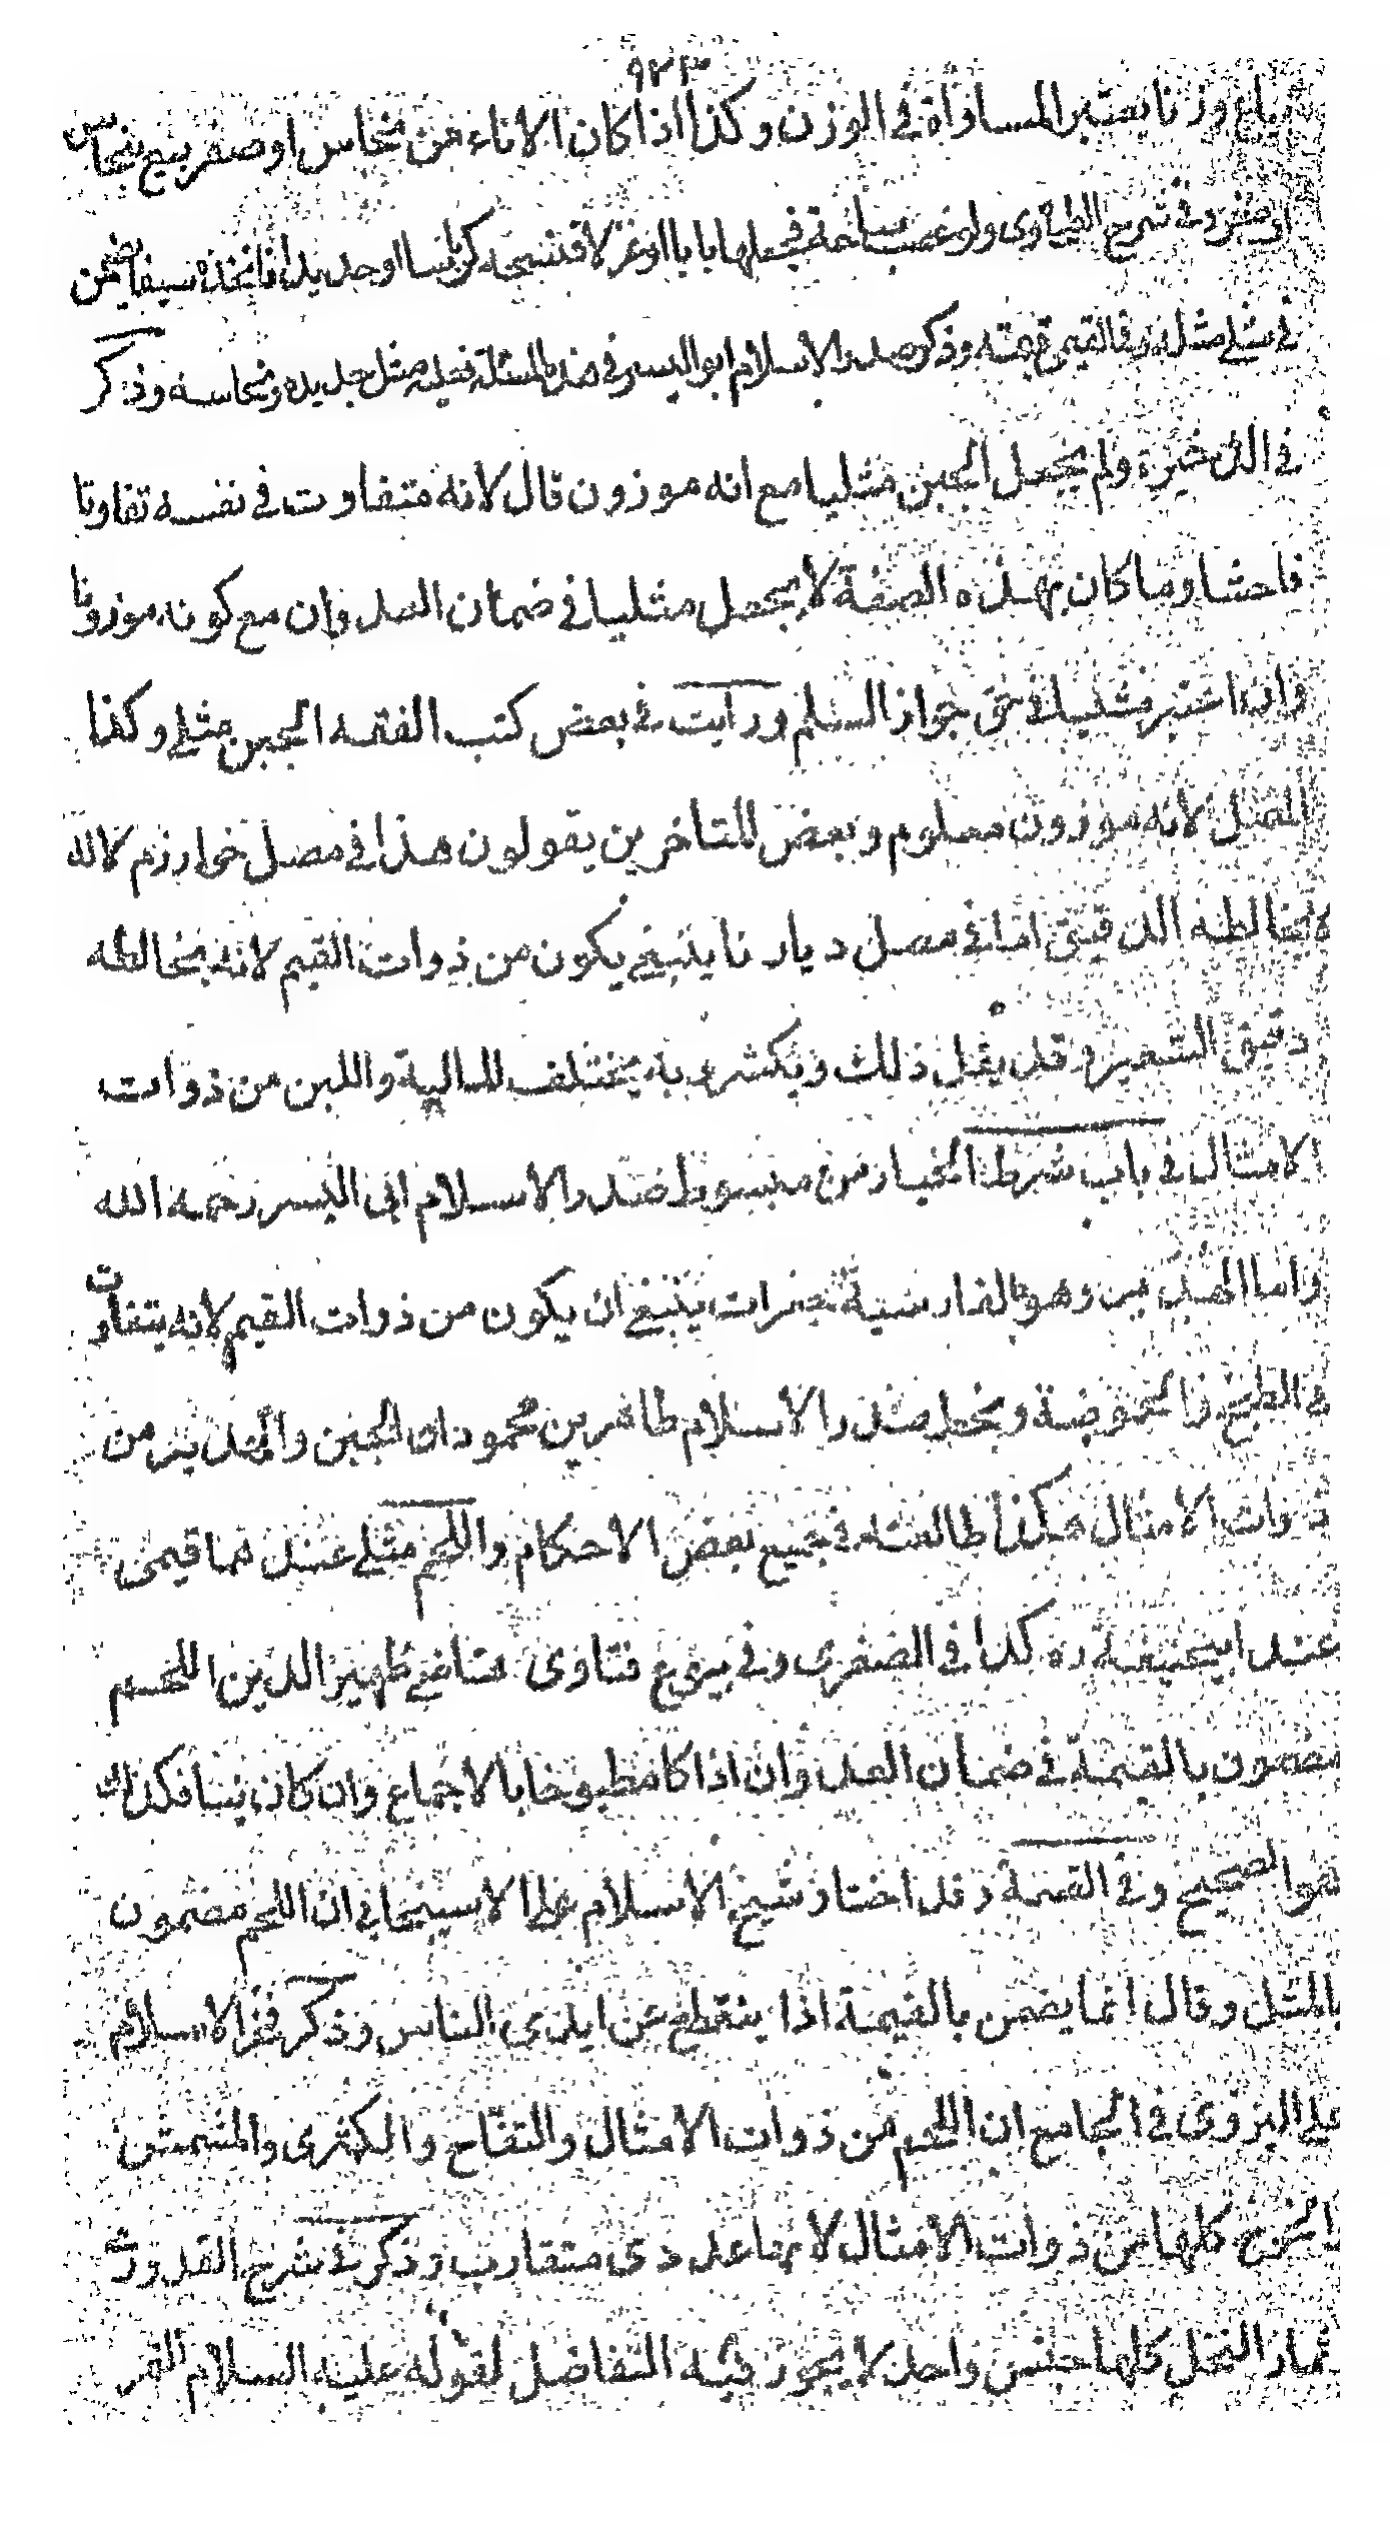 ٩٢٣
يباع وزنا يعتبر المساواة في الوزن وكذا اذا كان الاناء من نحاس او صفر بيع بنحاس
او صفر وفي شرح الطحاوى ولو غصب ساحة فجعلها بابا او غزلا فنسجه كرباسا او حديدا فاتخذه سيفا يضمن
في مثلي مثله وفي القيمي قيمته وذكر صدر الاسلام ابو اليسر في هذه المسئلة فعليه مثل حديده ونحاسه وذكر
في الذخيرة ولم يجعل الجبن مثليا مع انه موزون قال لانه متفاوت في نفسه تفاوتا
فاحشا وما كان بهذه الصفة لا يجعل مثليا في ضمان العدوان مع كونه موزونا
وان اعتبر مثليا في حق جواز السلم ورايت في بعض كتب الفقه الجبن مثلي وكذا
المصل لانه موزون معلوم وبعض المتاخرين يقولون هذا في مصل خوارزم لانه
لا يخالطه الدقيق اما في مصل ديارنا ينبغي يكون من ذوات القيم لانه يخالطه
دقيق الشعير وقد يقل ذلك ويكثر وبه يختلف المالية واللبن من ذوات
الامثال في باب شرط الخيار من مبسوط صدر الاسلام ابى اليسر رحمه الله
واما وهو بالفارسية ينبغي ان يكون من ذوات القيم لانه يتفاوت
في الطبخ والحموضة وبخط صدر الاسلام طاهر بن محمود ان الجبن من
ذوات الامثال هكذا طالعته في جميع بعض الاحكام واللحم مثلي عندهما قيمى
عند ابيحنيفة ره كذا في الصغرى وفي بيوع فتاوى قاضي ظهير الدين اللحم
مضمون بالقيمة في ضمان العدوان اذا كا مطبوخا بالاجماع وان كان نيا فكذلك
هو الصحيح وفي القسمة وقد اختار شيخ الاسلام على الاسبيجابي ان اللحم مضمون
بالمثل وقال انما يضمن بالقيمة اذا ينقطع عن ايدى الناس وذكر فخر الاسلام
على البزدوى في الجامع ان اللحم من ذوات الامثال والتفاح والكمثرى والمشمش
والخوخ كلها من ذوات الامثال لانها عددى متقارب وذكر في شرح القدورى
ثمار النخل كلها جنس واحد لا يجوز فيه التفاضل لقوله عليه السلام التمر